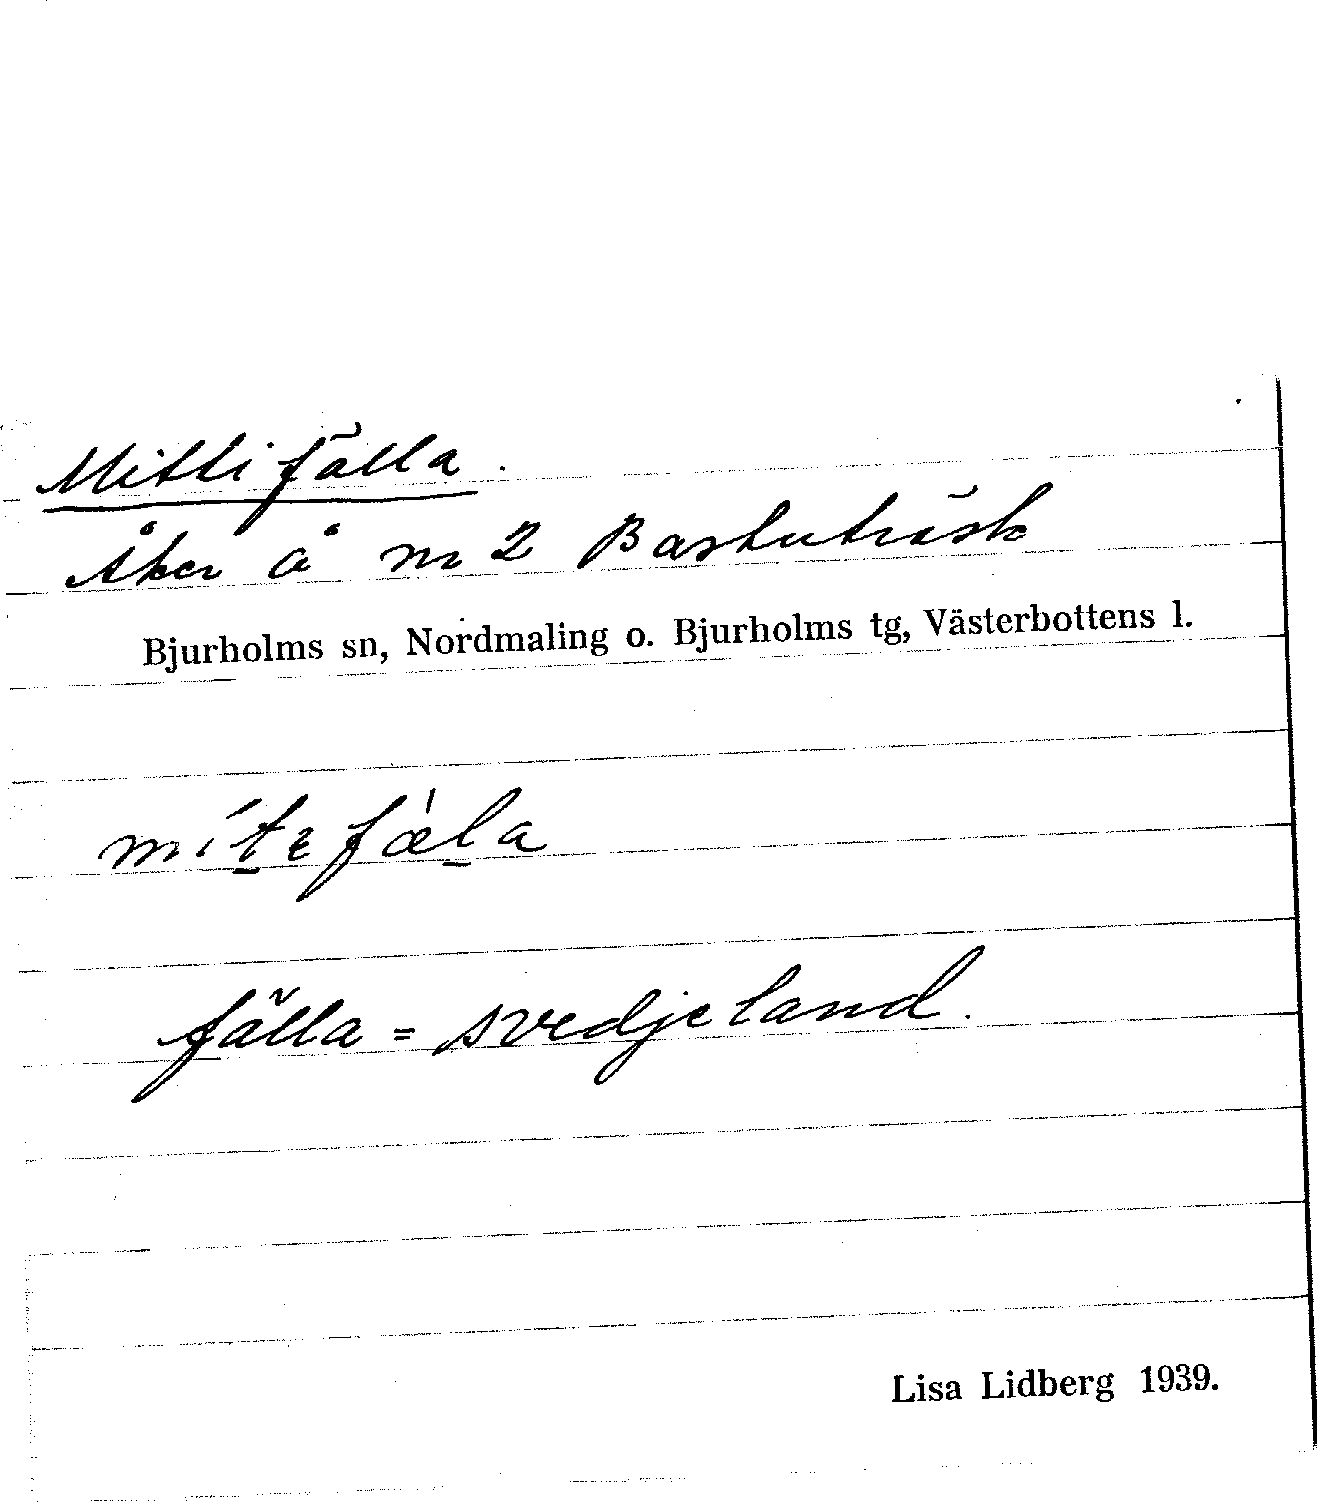 Mittifälla.
Åker å nr 2 Bastuträsk
Bjurholms sn, Nordmaling o. Bjurholms tg, Västerbottens l.
míṯɛfǽḻa
fälla = svedjeland.
Lisa Lidberg 1939.